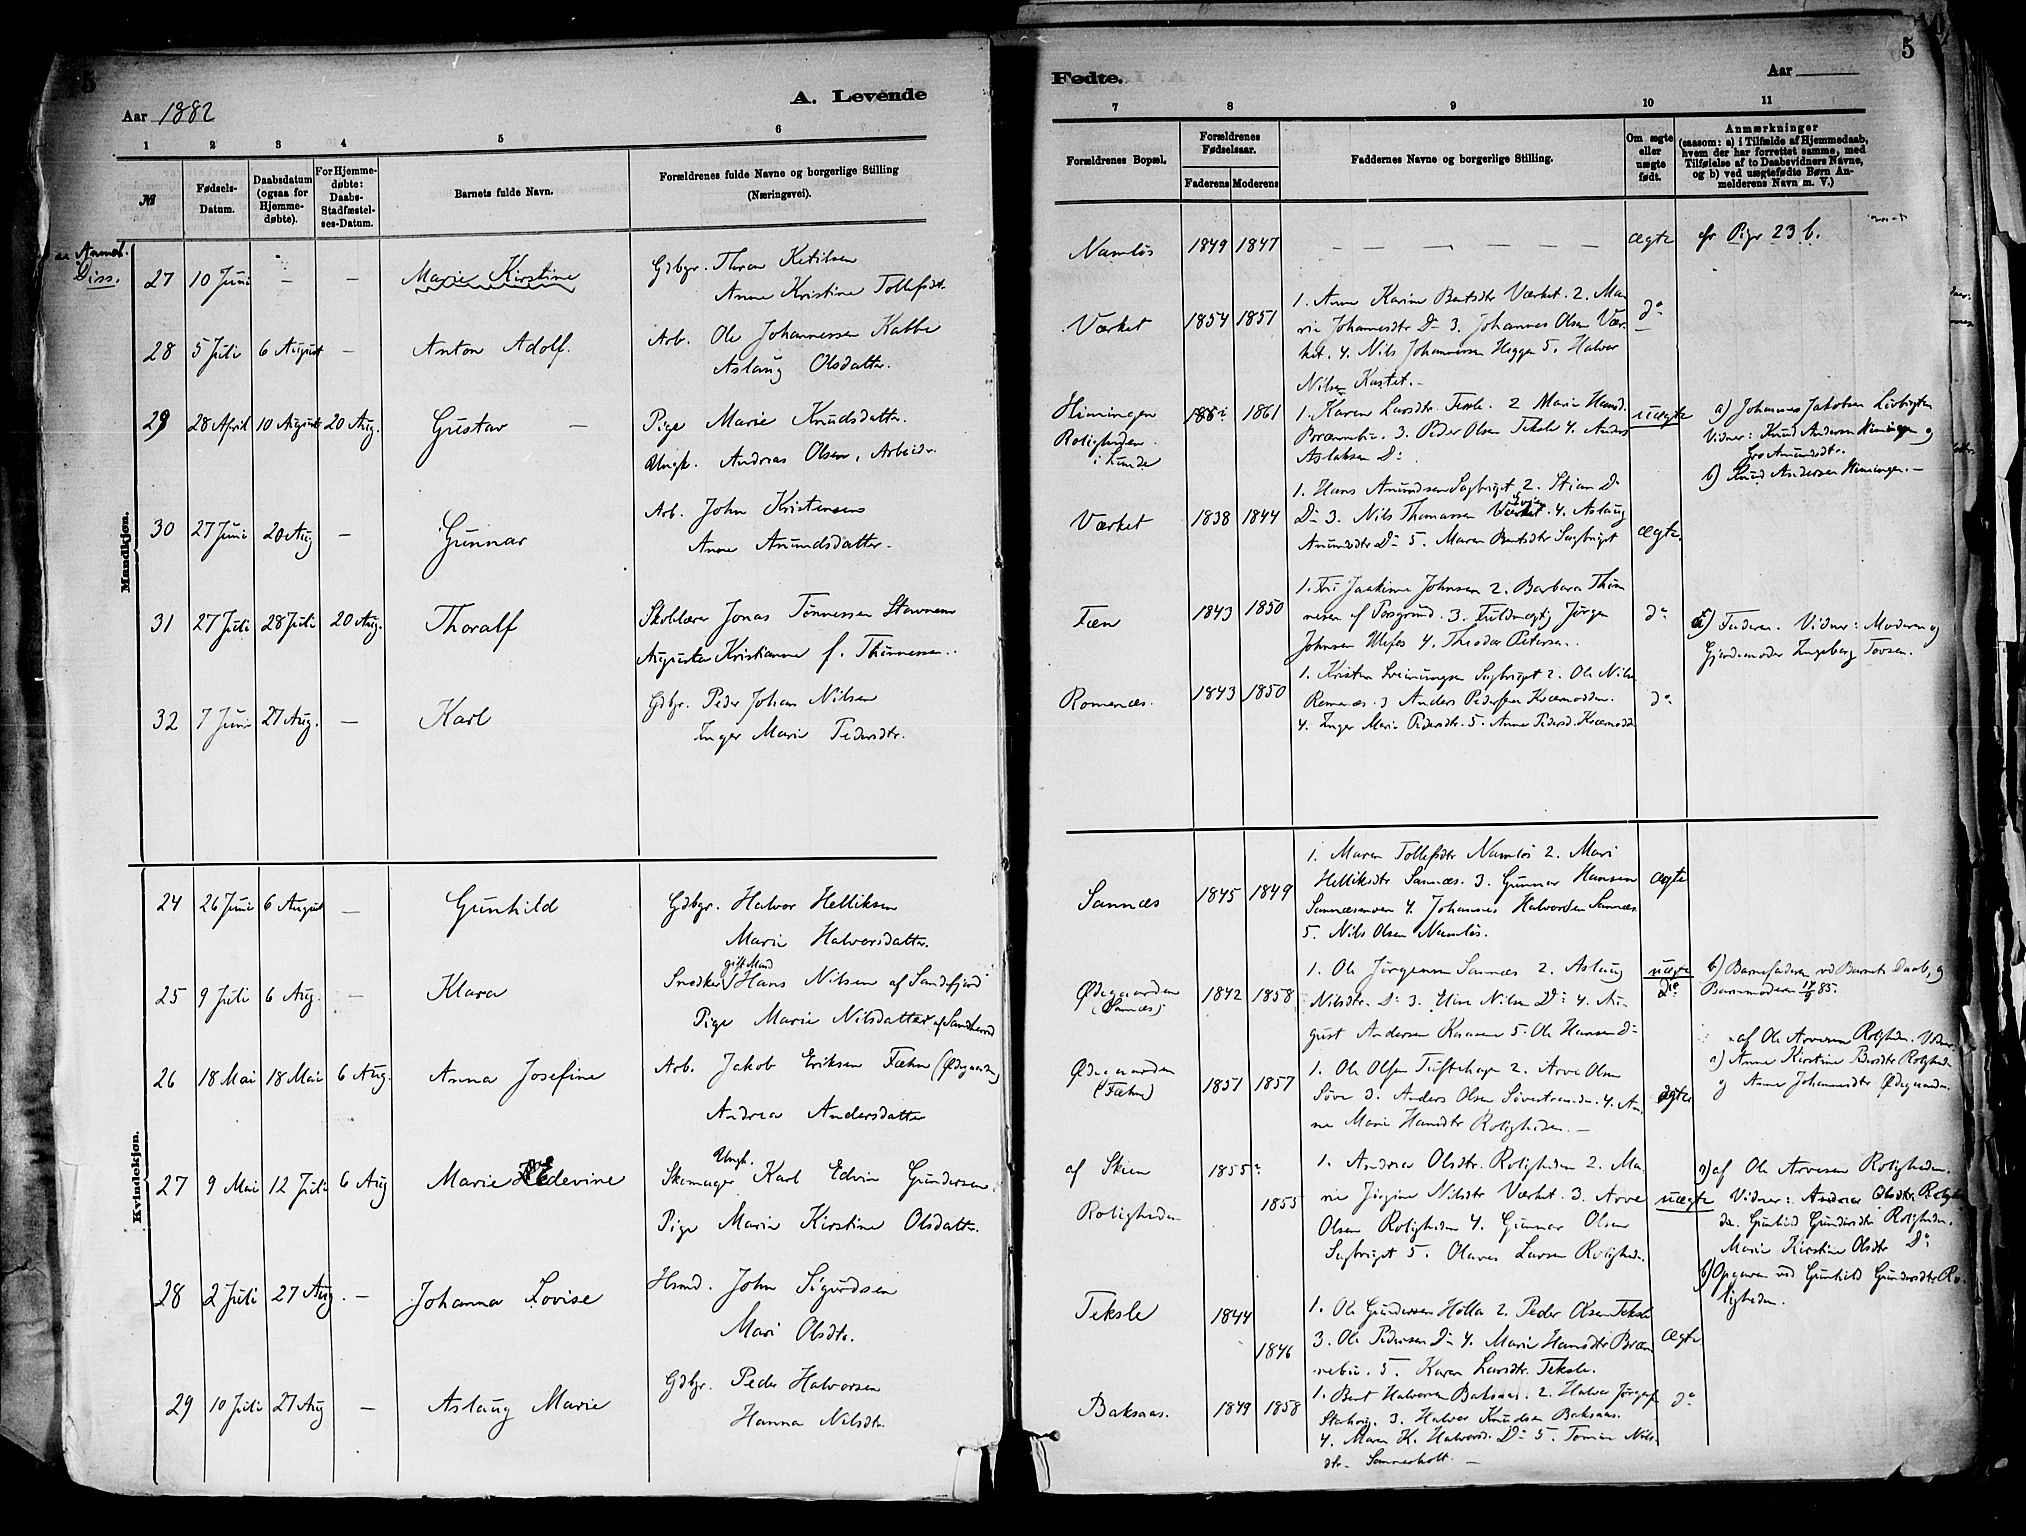 5
Aar 1882
A. Levende
1 2 3 4 5 6
№
Fødsels-Datum.
Daabsdatum (ogsaa for Hjemmedøbte).
For Hjemmedøbte: Daabs-Stadfæstelses-Datum.
Barnets fulde Navn.
Forældrenes fulde Navne og borgerlige Stilling
(Næringsvei).
Mandkjøn.
Diss.
27 10 Juni – – Marie Kirstine Gdbgr. Thron Ketilsen
Anne Kristine Tollefsdt.
28 5 Juli 6 August – Anton Adolf. Arb. Ole Johannessen Kabbe
Aslaug Olsdatter.
29 28 April 10 August 20 Aug. Gustav – Pige Marie Knudsdatter.
Ungk. Andreas Olsen, Arbeidr.
30 27 Juni 20 Aug – Gunnar Arb. John Kristensen
Anne Anundsdatter.
31 27 Juli 28 Juli 20 Aug. Thoralf Skolelærer Jonas Tønnessen Stavnem
Augusta Kristianne f. Thinnessen.
32 7 Juni 27 Aug. – Karl Gdbgr. Peder Johan Nilsen
Inger Marie Pedersdtr.
Kvindekjøn.
24 26 Juni 6 August – Gunhild Gdbgr. Halvor Helliksen
Marie Halvorsdatter.
gift Mand
25 9 Juli 6 Aug. – Klara Snedker Hans Nilsen af Sandefjord
Pige Marie Nilsdatter af Sandherred
26 18 Mai 18 Mai 6 Aug. Anna Josefine Arb. Jakob Eriksen Fæhn (Ødegaarden)
Andrea Andersdatter
Ungk.
27 9 Mai 12 Juli 6 Aug Marie Edevine Skomager Karl Edvin Gundersen.
Pige Marie Kirstine Olsdatter.
28 2 Juli 27 Aug. – Johanna Lovise Hsmd. John Sigurdsen
Mari Olsdtr.
29 10 Juli 27 Aug – Aslaug Marie Gdbgr. Peder Halvorsen
Hanna Nilsdtr.
5
Fødte.
Aar
7 8 9 10 11
Forældrenes Bopæl.
Forældrenes Fødselsaar.
Faderens Moderens
Faddernes Navne og borgerlige Stilling.
Om ægte eller uægte født.
Anmærkninger
(saasom: a) i Tilfælde af Hjemmedaab, hvem der har forrettet samme, med Tilføielse af to Daabsvidners Navne, og b) ved uægtefødte Børn Anmelderens Navn m. V.)
Namløs 1849 1847 – – – – – – ægte cfr Piger 23 b.
Værket 1854 1851 1. Anne Karine Bentsdtr Værket. 2. Ma
rie Johannesdtr Do 3. Johannes Olsen Vær
ket. 4. Nils Johannessen Heggen 5. Halvor
Nilsen Kastet. – do
Himingen
Roligheden
i Lunde
1861 1. Karen Larsdtr. Teksle. 2 Marie Hansd.
Brænnebu. 3. Peder Olsen Teksle 4. Anders
Aslaksen Do uægte
a) Johannes Jakobsen
Vidner: Knud Andersen Himingen og
Gro Anundsdtr.
b) Knud Andersen Himingen. –
Værket 1838 1844 1. Hans Anundsen Sagbriget 2. Stian Do
Do 3. Nils Thomassen 4. Aslaug
Anundsdtr Do 5. Maren Bentsdtr Sagbriget ægte.
Fæn 1843 1850 1. Fru Joakime Johnsen 2. Barbara Thin
nesen af Porsgrund. 3. Fuldmægtig Jørgen
Johnsen Ulefos 4. Theodor Petersen. do
a) Faderen. Vidner: Moderen og
Gjordemoder Ingeborg Tovsen.
Romenæs. 1843 1850 1. Kristen Sveinungsen Sagbriget 2. Ole Nilsen
Romenæs. 3 Anders Pedersen Kvæmodden.
4. Inger Marie Pedersdtr. 5. Anne Pedersd. Kvæmodd do
Sannæs 1845 1849 1. Maren Tollefsdtr Namløs 2. Mari
Helliksdtr Sannæs. 3. Gunnar Hansen
Sannæsmoen 4. Johannes Halvorsen Sannæs
5. Nils Olsen Namløs. ægte
Ødegaarden
(Sannæs)
1842 1858 1. Ole Jørgensen Sannæs 2. Aslaug
Nilsdtr. Do 3. Nilsen Do 4. Au-
gust Andersen 5. Ole Hansen Do uægte
b) Barnefaderen ved Barnets Daab, og
Barnemoderen 17/9 85.
Ødegaarden
(Fæhn)
1851 1857 1. Ole Olsen Tuftehagen 2. Arve Olsen
Søve 3. Anders Olsen 4. An-
ne Marie Hansdtr Roligheden. – ægte
af Ole Arvesen Roligheden. Vidner
a) Anne Kirstine Roligheden
og Anne Johannesdtr Ødegaarden.
af Skien
Roligheden
1855 1855 1. Andrea Olsdtr. Roligheden 2. Ma-
rie Jørgine Nilsdtr Værket 3. Arve
Olsen Roligheden 4. Gunnar Olsen
Sagbriget 5. Olaves Larsen Roligheden. uægte
a) af Ole Arvesen Roligheden.
Vidner: Andrea Olsdtr. Roligh
den. Gunhild Gundersdtr Roligheden.
Marie Kirstine Olsdtr Do
b) Opgaven ved Gunhild Gundersdtr Ro-
ligheden.
Teksle 1844 1846 1. Ole Gundersen Holla 2. Peder Olsen Teksle
3. Ole Pedersen Do 4. Marie Hansdtr Bræn
nebu. 5. Karen Larsdtr. Teksle. ægte
Baksaas. 1849 1858 1. Bent Halvorsen Baksaas. 2. Halvor
3. Halvor Knudsen Baksaas.
4. Maren K. Halvorsd. Do 5. Tomine Nils-
dtr. Sannesholt. – do